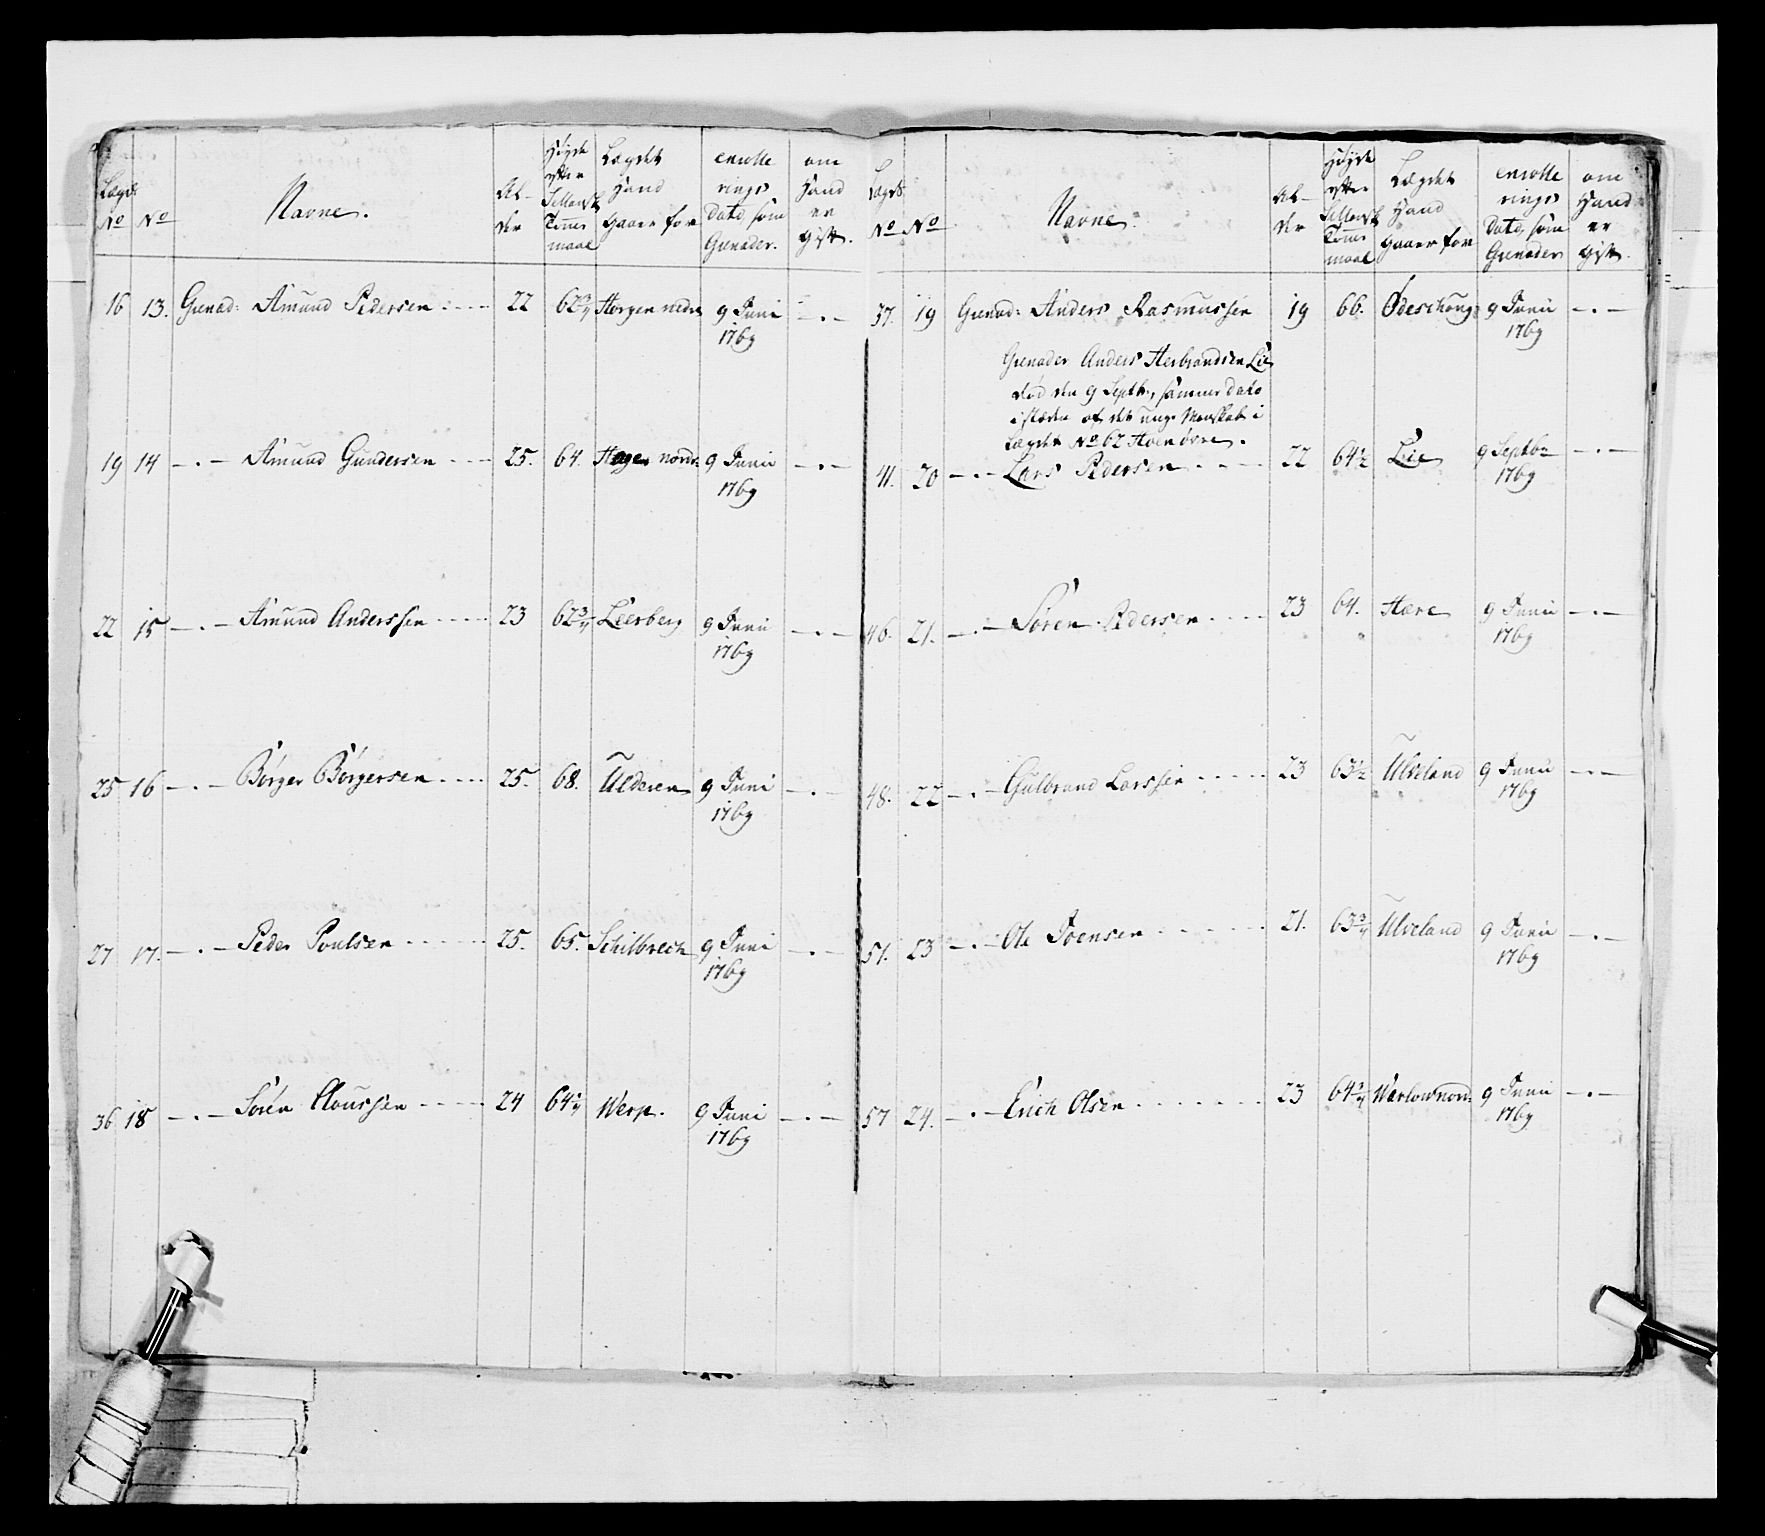 Lægds No | No | Navne. | Al-der | Høyde efter Sellansk Tomme maal | Lægdet Hand gaaer for | enrolle rings Dato som Grenader. | om Hand er gift.
16 | 13. | Grenad: Amund Pedersen | 22 | 62 3/4 | Horgen nedre | 9 Junii 1769 | —.—
19 | 14 | —.— Amund Gundersen | 25. | 64. | Hagen nordr | 9 Junii 1769 | —.—
22 | 15 | —.— Amund Anderssen | 23 | 62 3/4 | Leerberg | 9 Junii 1769 | —.—
25 | 16 | —.— Börger Börgersen | 25. | 68. | Ulderen | 9 Juni 1769 | —.—
27 | 17. | —.— Peder Poulsen | 25. | 65. | Schilbrech | 9 Juni 1769 | —.—
36 | 18 | —.— Sören Clourssen | 24 | 64 1/4 | Werp. | 9 Juni 1769 | —.—
Lægds No | No | Navne. | Al-der | Høyde efter Sellansk Tomme maal | Lægdet Hand gaaer for | enrolle rings Dato som Grenader | om Hand er gift.
37. | 19 | Grenad: Anders Rasmussen | 19 | 66. | Ødeschoug | 9 Junii 1769 | —.—
Grenader Anders Herbrandsen Lie
död den 9 Septbr, samme Dato
i stæden af det unge Manskab i
Lægdet No 62 Hoen övre.
41. | 20 | —.— Lars Pedersen | 22 | 64 1/2 | Lie | 9 Septbr 1769 | —.—
46. | 21. | —.— Sören Pedersen | 23 | 64. | Hære | 9 Junii 1769 | —.—
48. | 22 | —.— Gulbrand Larssen | 23 | 63 1/2 | Ulveland | 9 Junii 1769 | —.—
51. | 23 | —.— Ole Joensen | 21. | 63 3/4 | Ulveland | 9 Junii 1769 | —.—
57 | 24. | —.— Erich Olsen | 23 | 64 3/4 | Warlow nord: | 9 Junii 1769 | —.—